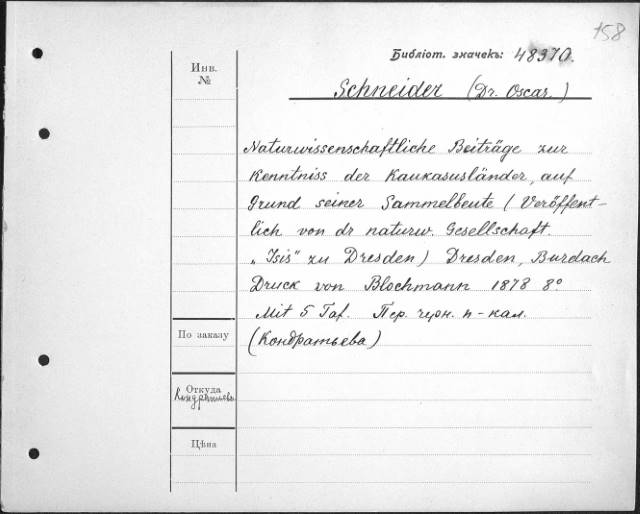 158
Библіот. значекъ: 48370.
Инв.
№
Schneider (Dr. Oscar.)
Naturwissenschaftliche Beiträge zur
Kenntniss der Kaukasusländer, auf
Grund seiner Sammelbeute (Veröffent-
lich von dr naturw. Gesellschaft.
„Isis" zu Dresden) Dresden, Burdach
Druck von Blochmann 1878 8°
Mit 5 Taf. Пер. черн. п-кал.
(Кондратьева)
По заказу
Откуда
Кондратьева
Цѣна